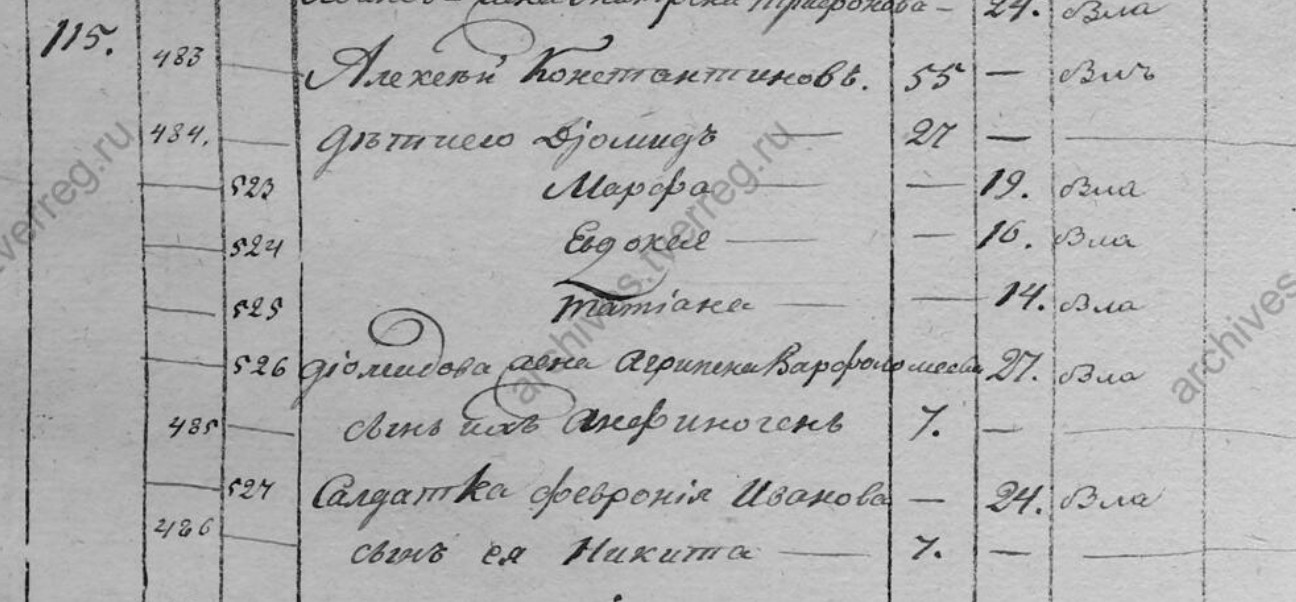 жена Трифонова — 24. Бла
115. 483 Алексѣй Константиновъ. 55 — Блъ
484. дѣти его Діомидъ — 27 —
523 Марфа — — 19. Бла
524 Евдокея — — 16. Бла
525 Татіана — — 14. Бла
526 Діомидова жена Агрипена Варфоломеева 27. Бла
485 сынъ ихъ Анфиногенъ 7. —
527 Салдатка Февронія Иванова — 24. Бла
486 сынъ ея Никита — 7. —
archives.tverreg.ru